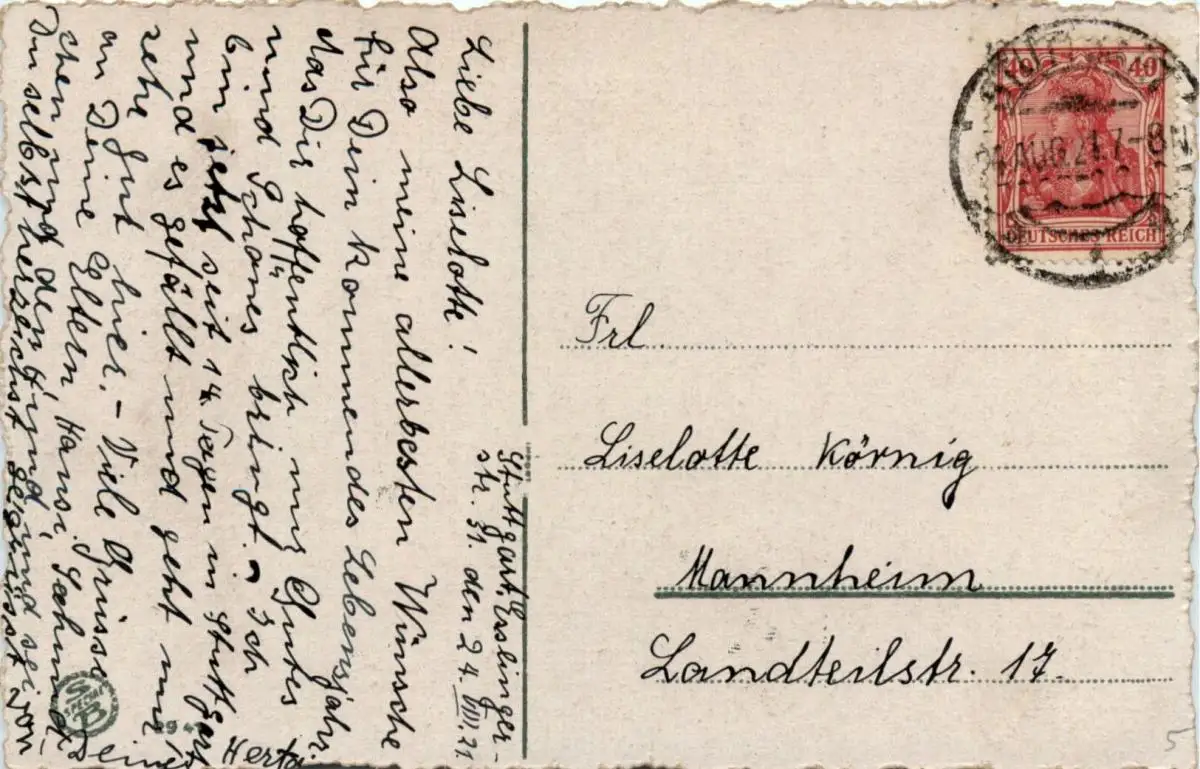 Stuttgart, Esslinger-
str. 31. den 24. VIII 21.
Liebe Liselotte!
Also meine allerbesten Wünsche
für Dein kommendes Lebensjahr
das Dir hoffentlich nur Gutes
und Schönes bringt. – Ich
bin jetzt seit 14 Tagen in Stuttgart
und es gefällt und geht mir
sehr gut hier. – Viele Grüsse
an Deine Eltern, Hansi,
chen und den und sei
Du selbst herzlichst gegrüsst von
Deiner Herta
Frl.
Liselotte Körnig
Mannheim
Landteilstr. 17.
40 40
DEUTSCHES REICH
AUG. 21. 7-8 N
5